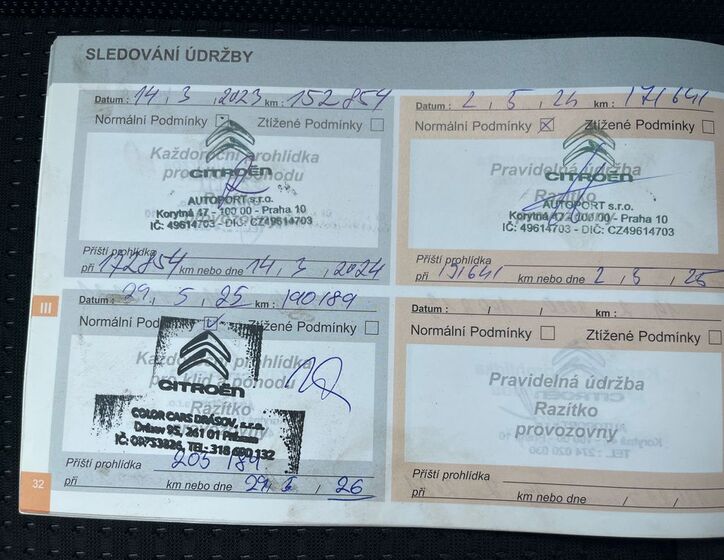 SLEDOVÁNÍ ÚDRŽBY
Datum : 14 . 3 . 2023 km : 152 854
Normální Podmínky Ztížené Podmínky
Každoroční prohlídka
pro klid a pohodu
CITROËN
AUTOPORT s.r.o.
Korytná 47 - 100 00 - Praha 10
IČ: 49614703 - DIČ: CZ49614703
Příští prohlídka
při 172854 km nebo dne 14 . 3 . 2024
Datum : 2 . 5 . 24 km : 171 641
Normální Podmínky Ztížené Podmínky
Pravidelná údržba
CITROËN
Razítko
AUTOPORT s.r.o.
Korytná 47 - 100 00 - Praha 10
provozovny
IČ: 49614703 - DIČ: CZ49614703
Příští prohlídka
při 191641 km nebo dne 2 . 5 . 25
III
Datum : 29 . 5 . 25 km : 190189
Normální Ztížené Podmínky
Každoroční prohlídka
pro klid a pohodu
CITROËN
Razítko
COLOR CARS DRÁSOV, s.r.o.
Drásov 95, 261 01 Příbram
provozovny
Příští prohlídka
při 205 189 km nebo dne 29. 5 / 26
Datum : / / km :
Normální Podmínky Ztížené Podmínky
Pravidelná údržba
Razítko
provozovny
Příští prohlídka
při km nebo dne / /
32